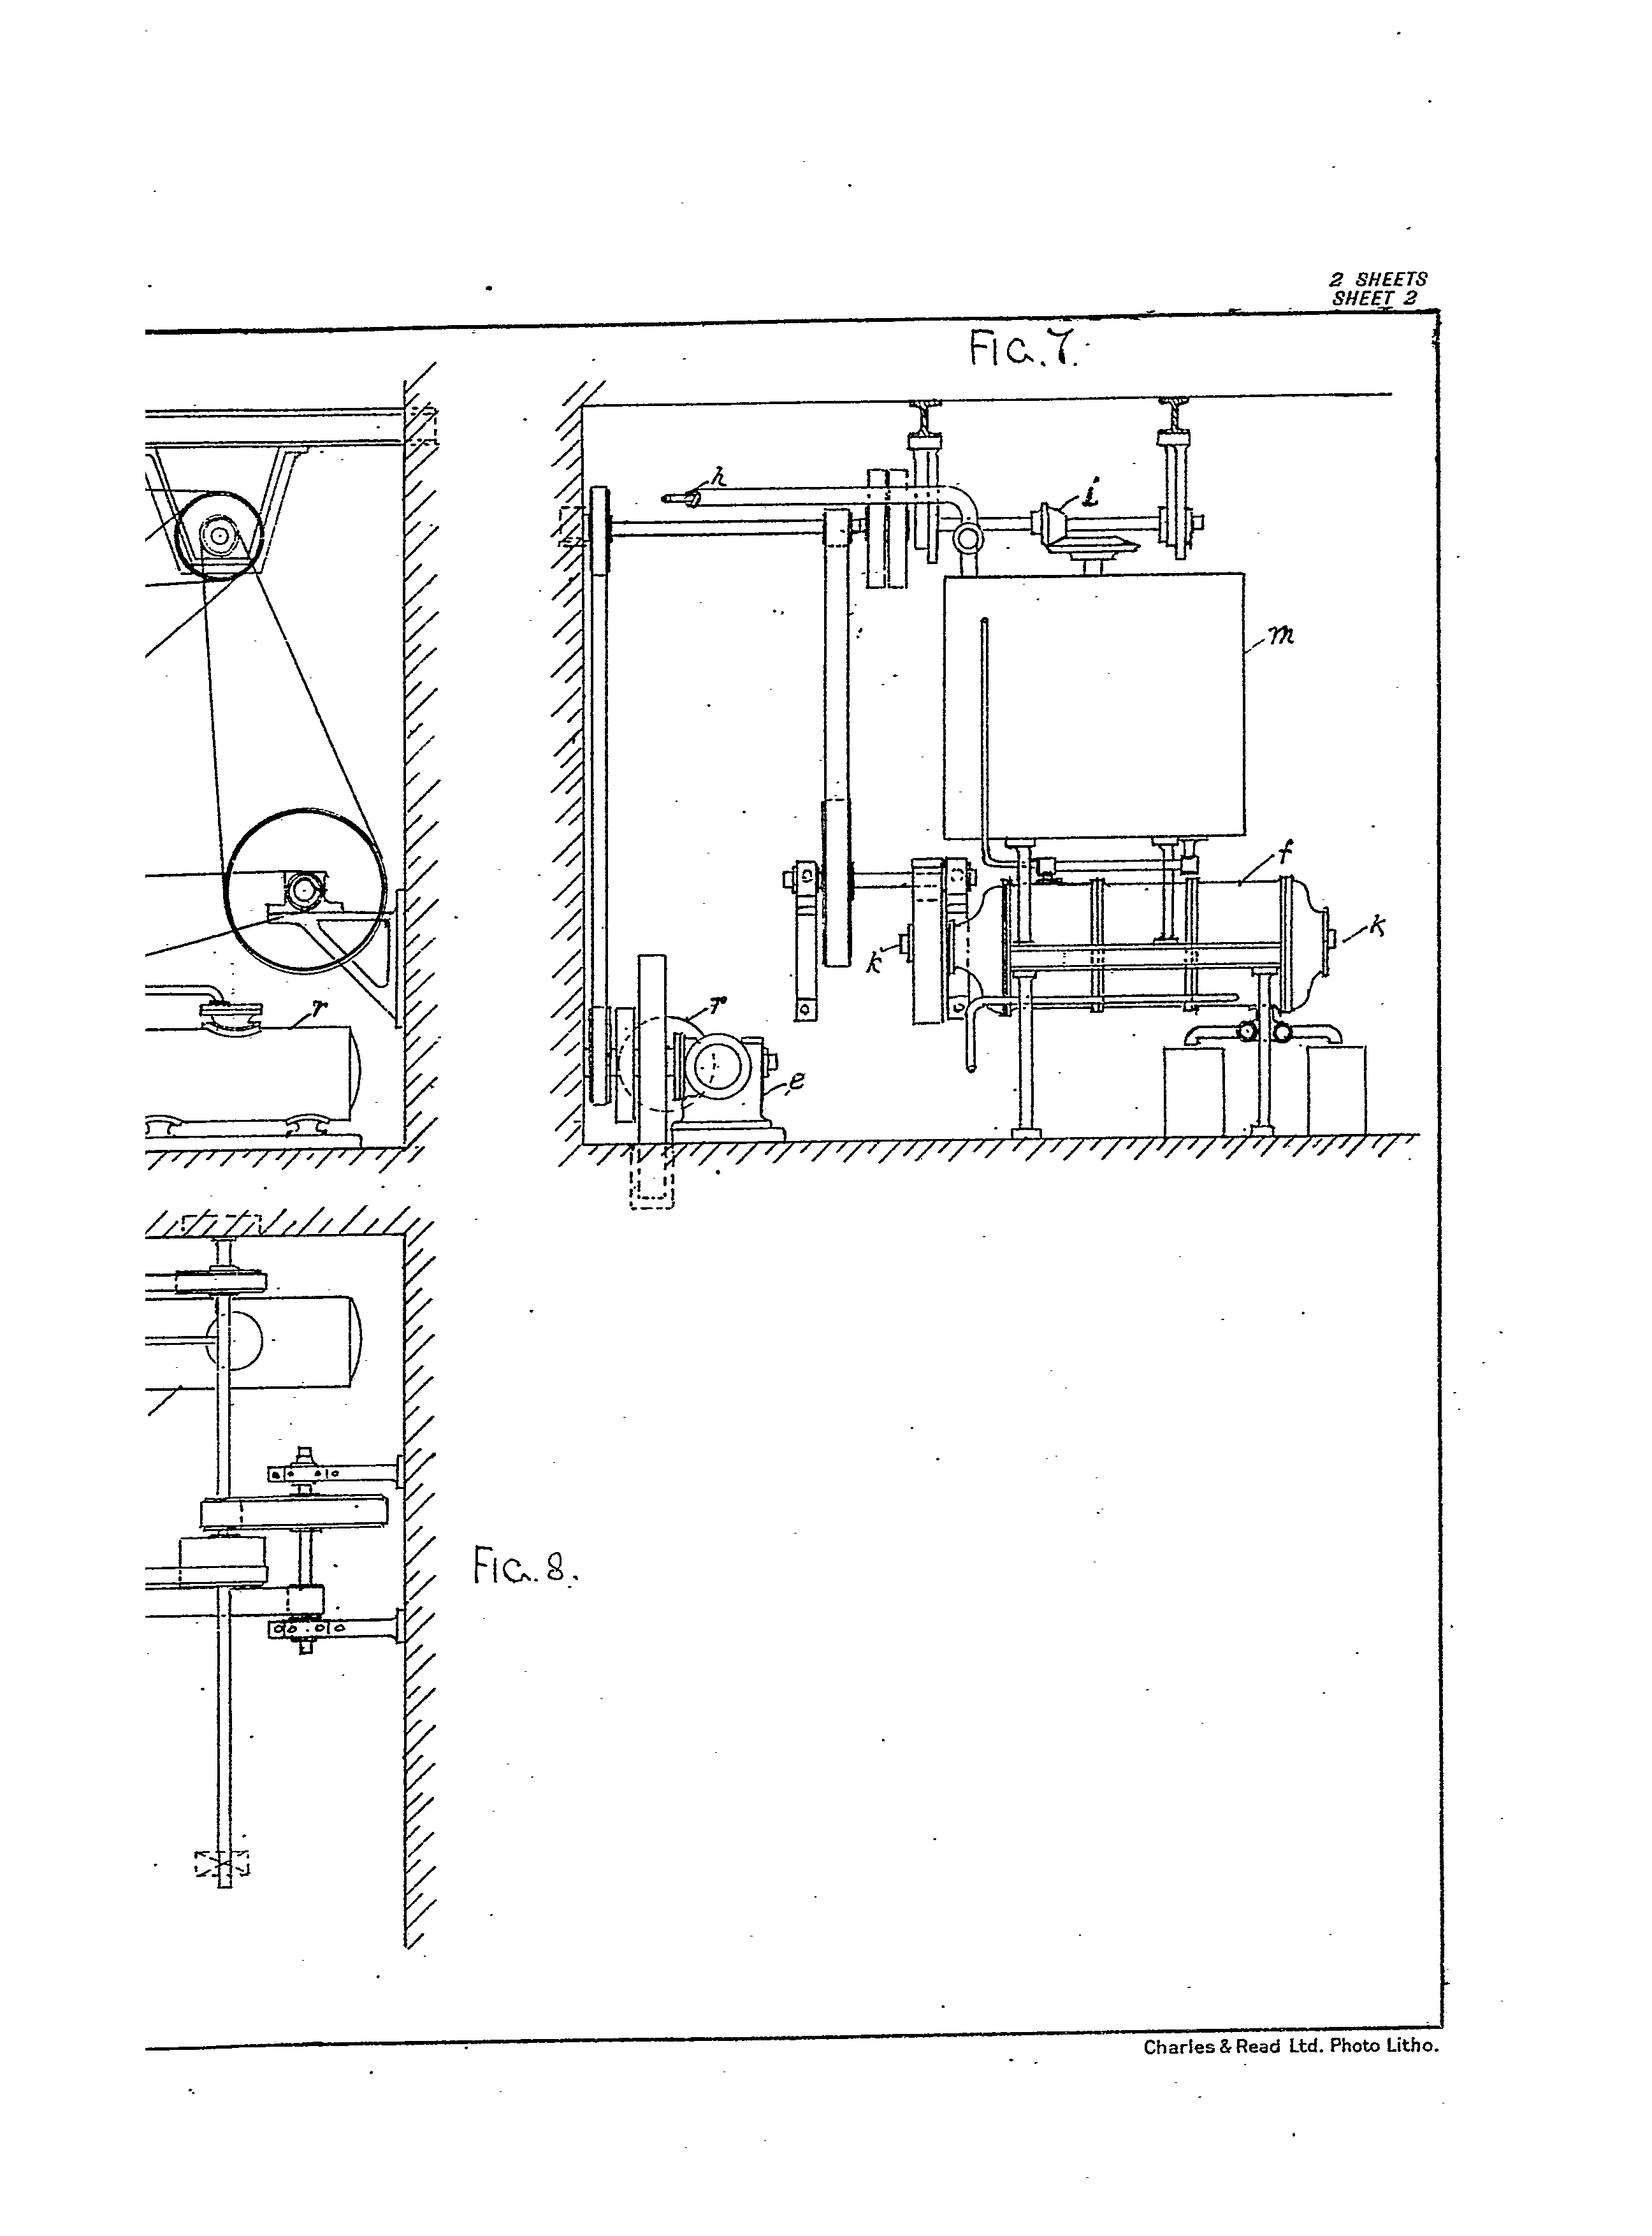 2 SHEETS
SHEET 2
FIG. 7.
h
i
m
f
k
k
r
e
r
FIG. 8.
Charles & Read Ltd. Photo Litho.